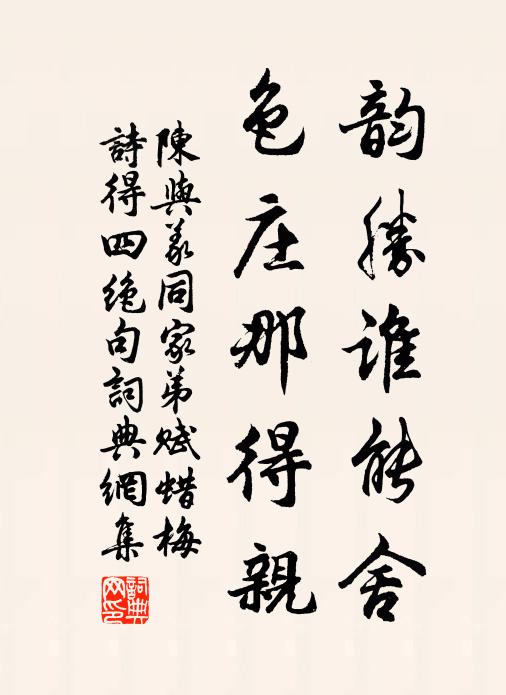 韵勝谁能舍
色庄那得親
陳與義同家弟赋蜡梅
詩得四絶句詞典網集
詞典网印